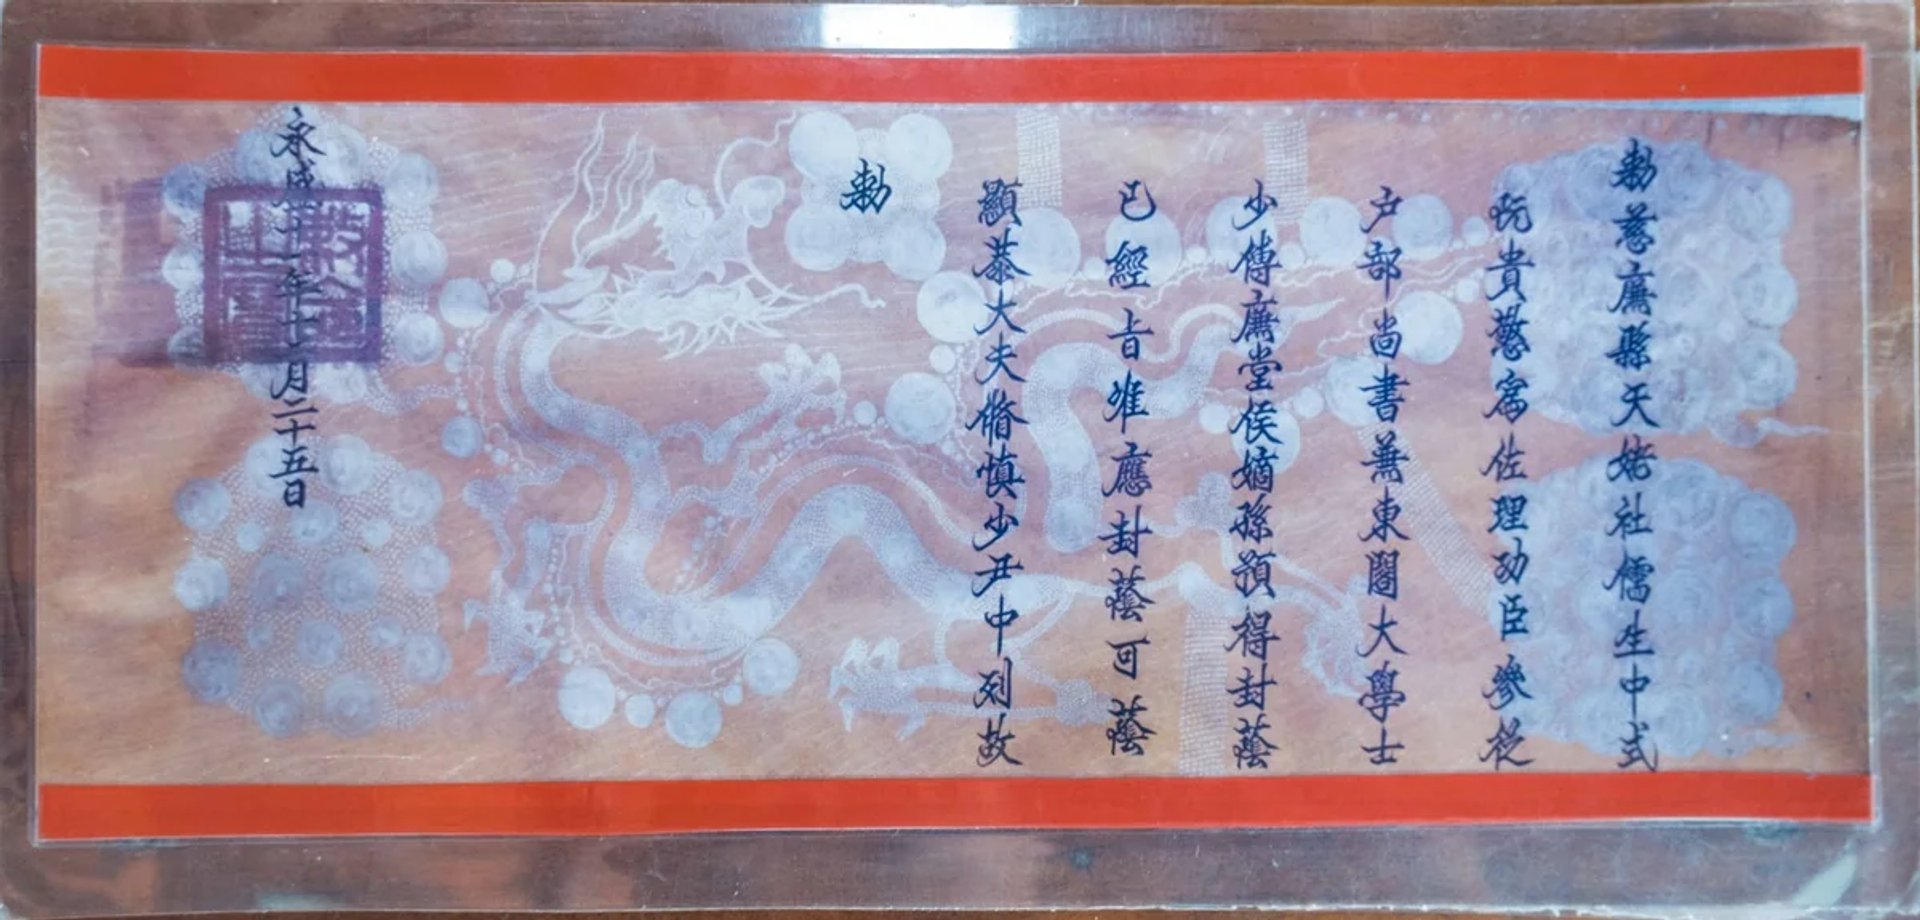 勅慈廉縣天姥社儒生中式
阮貴憼爲佐理功臣參從
户部尚書兼東閣大學士
少傅廉堂侯嫡孫預得封蔭
已經旨準應封蔭可蔭
顯恭大夫脩慎少尹中列故
勅
永盛十一年十一月二十五日